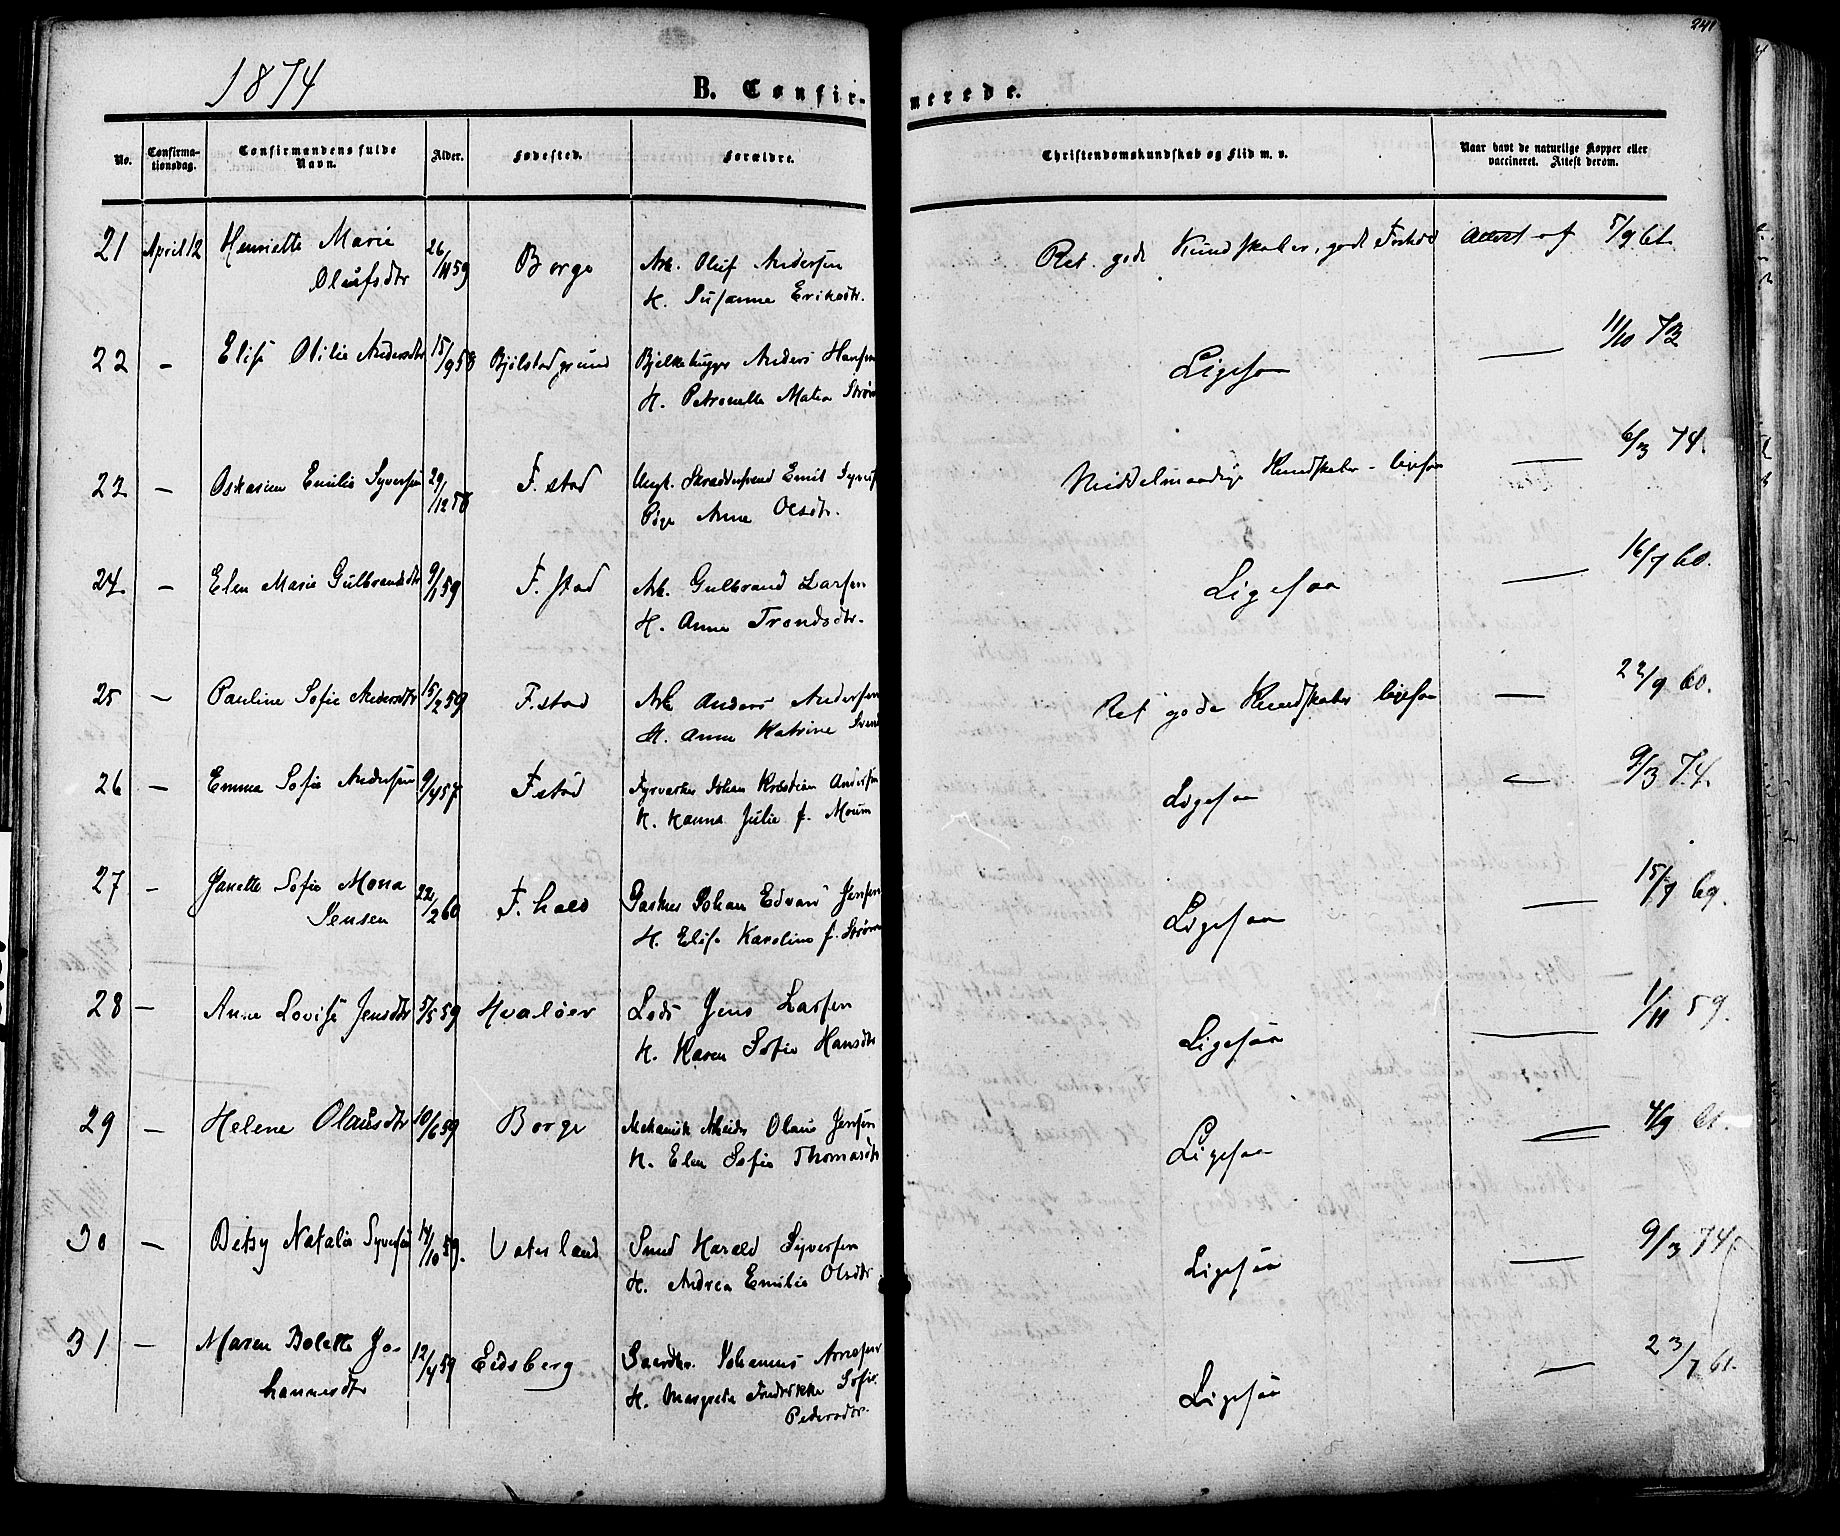 241
1874
B. Confirmerede.
No. Confirmationsdag. Confirmandens fulde Navn. Alder. Fødested. Forældre. Christendomskundskab og Flid m. v. Naar havt de naturlige Kopper eller vaccineret. Attest derom.
21 April 12 Henriette Marie 26/11 59 Borge Arb. Oluf Andersen Ret gode Kundskaber, godt Forhold Attest af 5/9 61.
Olufsdtr H. Susanne Eriksdtr.
22 - Elise Otilie Andersdtr 15/9 58 Bjølstad grund Bjelkehugger Anders Hansen Ligesaa — 11/10 73
H. Petronelle Matea Strøm
23 - Oskarine Emilie Syversen 29/12 58 F. stad Ungk. Skreddersvend Emil Syvers Middelmaadige Kundskaber - ligesaa — 6/3 74.
Pige Anne Olsdtr.
24 - Elen Marie Gulbrandsdtr 9/1 59 F. stad Arb. Gulbrand Larsen Ligesaa — 16/7 60.
H. Anne Trondsdtr.
25 - Pauline Sofie Andersdtr 15/2 59 F. stad Arb Anders Andersen Ret gode Kundskaber ligesaa — 22/9 60.
H. Anne Katrine Svend
26 - Emma Sofie Andersen 9/4 57 F stad Fyrverker Johan Kristian Andersen Ligesaa — 9/3 74.
H. Hanna Julie f. Moum
27 - Janette Sofie Mona 22/2 60 F. hald Johan Edvard Jensen Ligesaa — 15/7 69.
Jensen H. Elise Karoline f. Strøm
28 - Anne Lovise Jensdtr 5/5 59 Hvaløer Lods Jens Larsen Ligesaa — 1/11 59.
H. Karen Sofie Hansdtr
29 - Helene Olausdtr 10/6 59 Borge Mekanisk Arbeider Olaus Jensen Ligesaa — 4/9 61.
H. Elen Sofie Thomasdtr
30 - Betsy Natalie Syversen 14/10 59. Vaterland Smed Harald Syversen Ligesaa — 9/3 74
H. Andrea Emilie Olsdtr
31 - Maren Bolette Jo- 12/4 59 Eidsberg Gaardbr. Johannes Arnesen Ligesaa — 23/7 61.
hannesdtr H. Margrete Fredrikke Sofie
Pedersdtr.